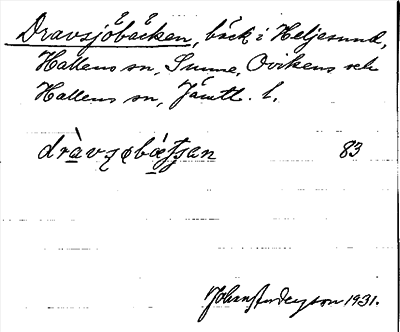 Dravsjöbäcken, bäck i Heljesund,
Hallens sn, Sunne, Ovikens och
Hallens sn, Jämtl. l.
dràvʂøbæ̀ʃʃan 83
Johan Anderzon 1931.